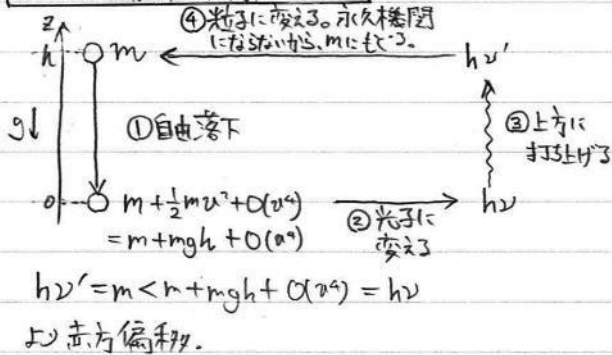 ④粒子に変える。永久機関
にならないから、mにもどる。
z
h
m
hν'
g↓
①自由落下
③上方に
打ち上げる
0
m + 1/2 mv² + O(v⁴)
= m + mgh + O(v⁴)
②光子に
変える
hν
hν' = m < m + mgh + O(v⁴) = hν
より赤方偏移.